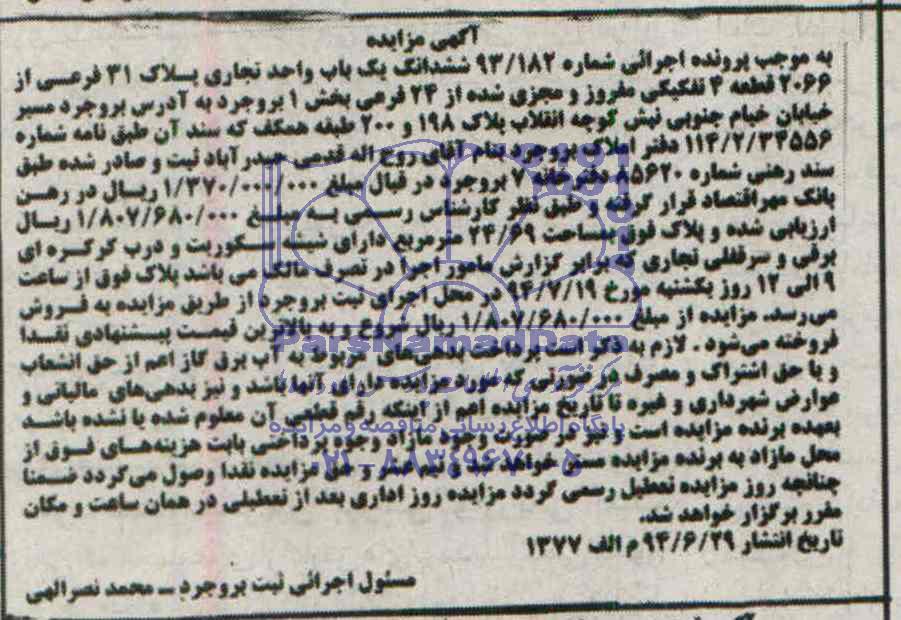 آگهی مزایده
به موجب پرونده اجرائی شماره ۹۳/۱۸۲ ششدانگ یک باب واحد تجاری پلاک ۳۱ فرعی از
۲۰۶۶ قطعه ۴ تفکیکی مفروز و مجزی شده از ۲۴ فرعی بخش ۱ بروجرد به آدرس بروجرد مسیر
خیابان خیام جنوبی نبش کوچه انقلاب پلاک ۱۹۸ و ۲۰۰ طبقه همکف که سند آن طبق نامه شماره
۱۱۴/۲/۳۴۵۵۶ دفتر املاک بروجرد بنام آقای روح اله قدمی حیدر آباد ثبت و صادر شده طبق
سند رهنی شماره ۸۵۶۲۰ دفترخانه ۷ بروجرد در قبال مبلغ ۱/۳۷۰/۰۰۰/۰۰۰ ریال در رهن
بانک مهراقتصاد قرار گرفته و طبق نظر کارشناس رسمی به مبلغ ۱/۸۰۷/۶۸۰/۰۰۰ ریال
ارزیابی شده و پلاک فوق بمساحت ۲۴/۶۹ مترمربع دارای شیشه سکوریت و درب کرکره ای
برقی و سرقفلی تجاری که برابر گزارش مامور اجرا در تصرف مالک می باشد پلاک فوق از ساعت
۹ الی ۱۲ روز یکشنبه مورخ ۹۴/۷/۱۹ در محل اجرای ثبت بروجرد از طریق مزایده به فروش
می‌رسد. مزایده از مبلغ ۱/۸۰۷/۶۸۰/۰۰۰ ریال شروع و به بالاترین قیمت پیشنهادی نقدا
فروخته می‌شود. لازم به ذکر است پرداخت بدهی‌های مربوط به آب برق گاز اعم از حق انشعاب
و یا حق اشتراک و مصرف در صورتی که مورد مزایده دارای آنها باشد و نیز بدهی‌های مالیاتی و
عوارض شهرداری و غیره تا تاریخ مزایده اعم از اینکه رقم قطعی آن معلوم شده یا نشده باشد
بعهده برنده مزایده است و نیز در صورت وجود مازاد وجوه پرداختی بابت هزینه‌های فوق از
محل مازاد به برنده مزایده مسترد خواهد شد و نیم عشر و حق مزایده نقدا وصول می‌گردد ضمنا
چنانچه روز مزایده تعطیل رسمی گردد مزایده روز اداری بعد از تعطیلی در همان ساعت و مکان
مقرر برگزار خواهد شد.
تاریخ انتشار ۹۴/۶/۲۹ م الف ۱۳۷۷
مسئول اجرائی ثبت بروجرد ــ محمد نصرالهی
ParsNamadData
پایگاه اطلاع رسانی مناقصه و مزایده
۰۲۱-۸۸۳۴۹۶۷۰-۵